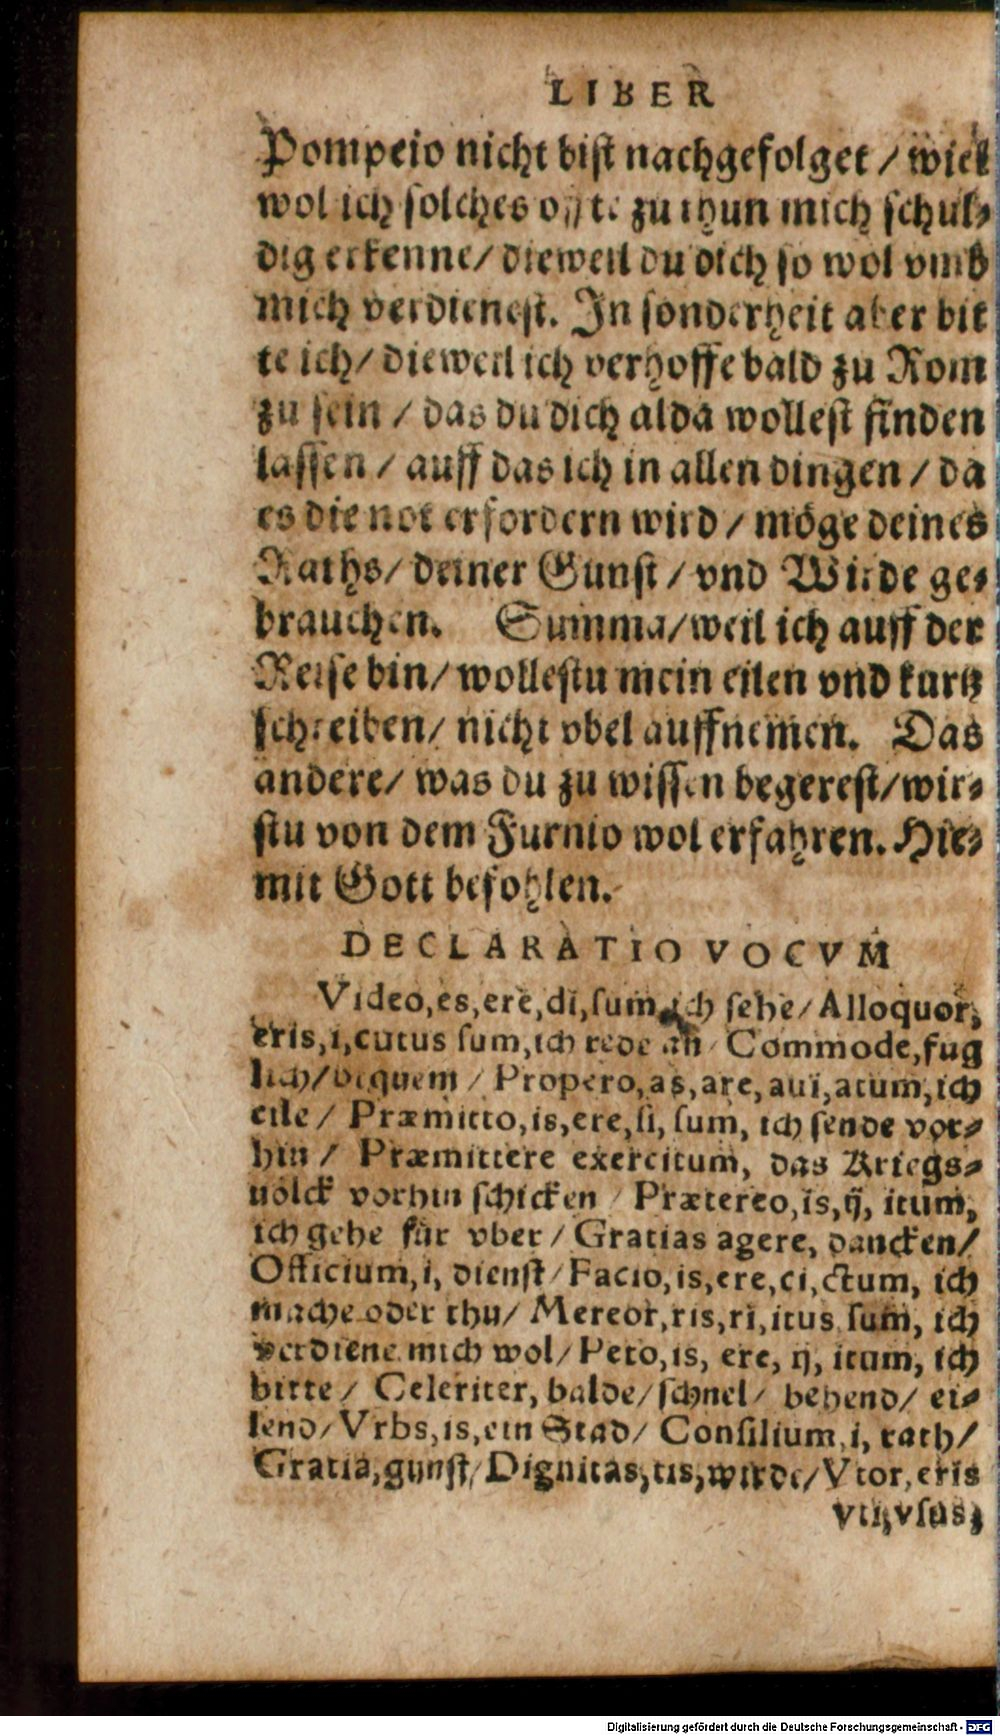 LIBER
Pompeio nicht bist nachgefolget / wie
wol ich solches offte zu thun mich schul⸗
dig erkenne / dieweil du dich so wol vmb
mich verdienest. In sonderheit aber bit
te ich / dieweil ich verhoffe bald zu Rom
zu sein / das du dich alda wollest finden
lassen / auff das ich in allen dingen / da
es die not erfordern wird / möge deines
Raths / deiner Gunst / vnd Wirde ge⸗
brauchen. Summa / weil ich auff der
Reise bin / wollestu mein eilen vnd kurtz
schreiben / nicht vbel auffnemen. Das
andere / was du zu wissen begerest / wir⸗
stu von dem Furnio wol erfahren. Hie⸗
mit Gott befohlen.
DECLARATIO VOCVM
Video, es, ere, di, sum, ich sehe / Alloquor,
eris, i, cutus sum, ich rede an / Commode, fug
lich / bequem / Propero, as, are, aui, atum, ich
eile / Præmitto, is, ere, si, sum, ich sende vor⸗
hin / Præmittere exercitum, das Kriegs⸗
uolck vorhin schicken / Prætereo, is, ij, itum,
ich gehe für vber / Gratias agere, dancken /
Officium, i, dienst / Facio, is, ere, ci, ctum, ich
mache oder thu / Mereor, ris, ri, itus sum, ich
verdiene mich wol / Peto, is, ere, ij, itum, ich
bitte / Celeriter, balde / schnel / behend / ei⸗
lend / Vrbs, is, ein Stad / Consilium, i, rath /
Gratia, gunst / Dignitas, tis, wirde / Vtor, eris
vti, vsus,
Digitalisierung gefördert durch die Deutsche Forschungsgemeinschaft - DFG